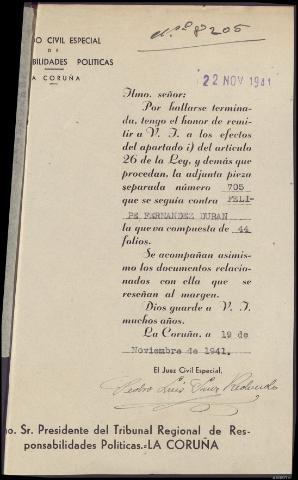 Nº 8205
DO CIVIL ESPECIAL
DE
BILIDADES POLITICAS
A CORUÑA
22 NOV 1941
Ilmo. señor:
Por hallarse termina-
da, tengo el honor de remi-
tir a V. I. a los efectos
del apartado i) del artículo
26 de la Ley, y demás que
procedan, la adjunta pieza
separada número 705
que se seguía contra FELI-
PE FERNANDEZ DURAN
la que va compuesta de 44
folios.
Se acompañan asimis-
mo los documentos relacio-
nados con ella que se
reseñan al margen.
Dios guarde a V. I.
muchos años.
La Coruña, a 19 de
Noviembre de 1941.
El Juez Civil Especial,
Pedro Luis
mo. Sr. Presidente del Tribunal Regional de Res-
ponsabilidades Políticas.-LA CORUÑA